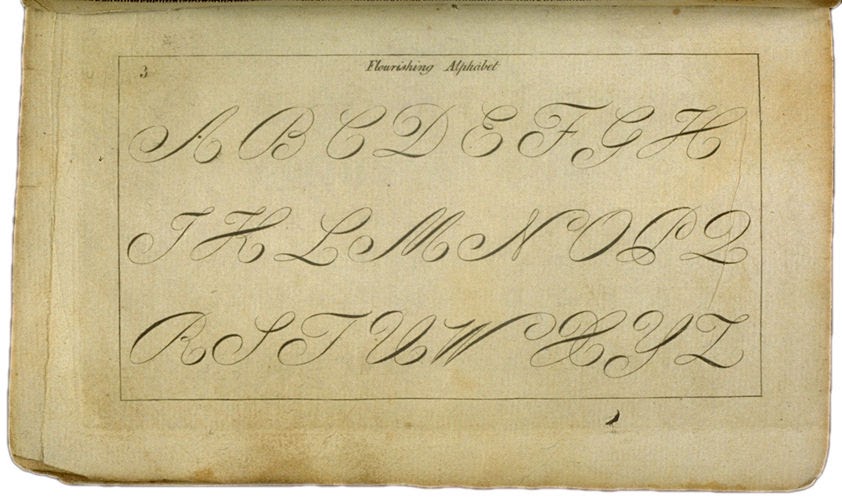 3
Flourishing Alphabet
A B C D E F G H
I K L M N O P Q
R S T U W X Y Z